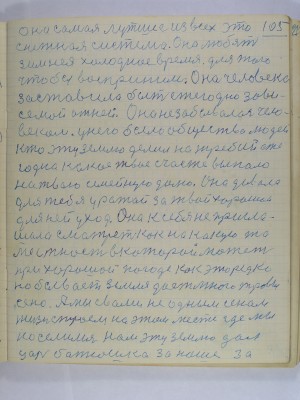 она самая лутшиє из всех это 105
снежная система. Она любят
зимнея холодное время, для того
чтобы восприним. Она человека
заставила быть ежегодно зови-
семой от ней. Она не забывался чело-
веком. у него было общество людей
кто эту землю делил на три бой оте
года какой твое счастє выпало
на твою семейную долю. Она давала
для тебя уражай за твой хороший
для ней уход. Она к себе не пригла-
шала сматреть как на какую та
местность в которой может
при хорошой погоде как это редко
но бывает земля даёт много травы
сено. А мы с вами не одным сеном
жизу строем на этом месте где мы
поселимся нам эту землю дал
царь батюшка за наше за